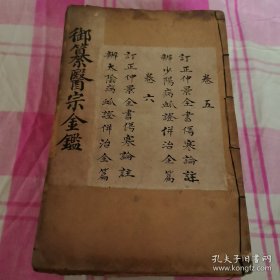 御纂醫宗金鑑
卷五
訂正仲景全書傷寒論註
辨少陽病脈證併治全篇
卷六
訂正仲景全書傷寒論註
辨太陰病脈證併治全篇
孔夫子旧书网